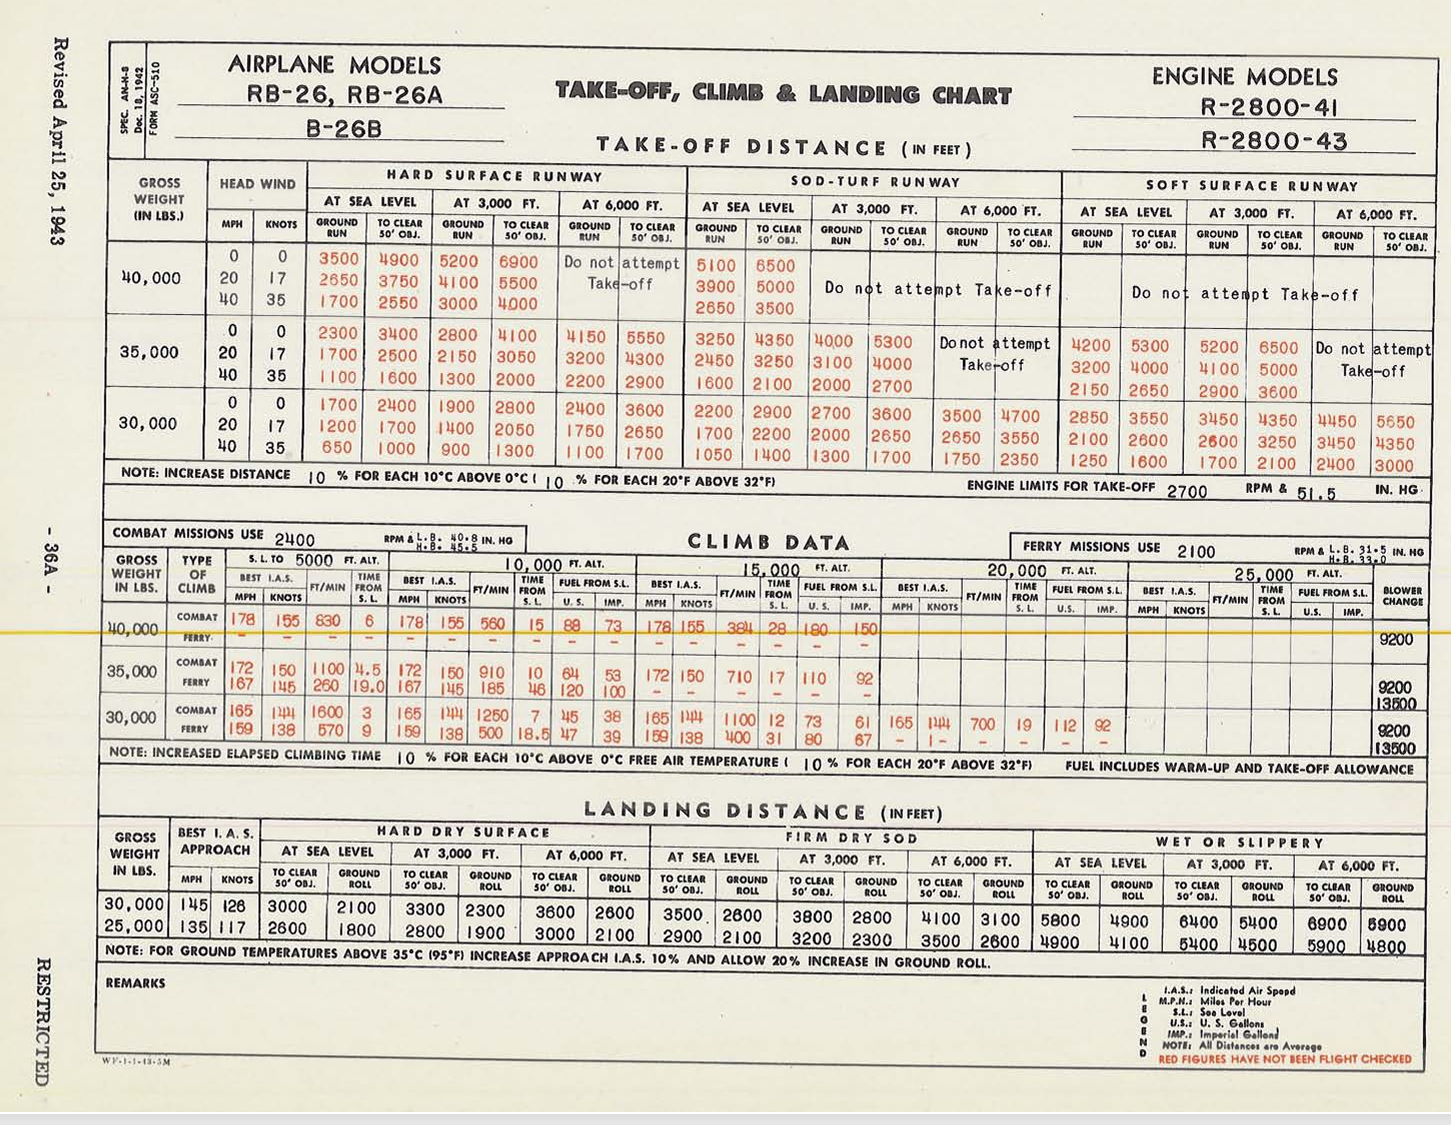 Revised April 25, 1943
- 36A -
RESTRICTED
SPEC. AN-H-8
Dec. 18, 1942
FORM ASC-510
AIRPLANE MODELS
RB-26, RB-26A
B-26B
TAKE-OFF, CLIMB & LANDING CHART
ENGINE MODELS
R-2800-41
R-2800-43
TAKE-OFF DISTANCE (IN FEET)
GROSS WEIGHT (IN LBS.) HEAD WIND HARD SURFACE RUNWAY SOD-TURF RUNWAY SOFT SURFACE RUNWAY
AT SEA LEVEL AT 3,000 FT. AT 6,000 FT. AT SEA LEVEL AT 3,000 FT. AT 6,000 FT. AT SEA LEVEL AT 3,000 FT. AT 6,000 FT.
MPH KNOTS GROUND RUN TO CLEAR 50' OBJ. GROUND RUN TO CLEAR 50' OBJ. GROUND RUN TO CLEAR 50' OBJ. GROUND RUN TO CLEAR 50' OBJ. GROUND RUN TO CLEAR 50' OBJ. GROUND RUN TO CLEAR 50' OBJ. GROUND RUN TO CLEAR 50' OBJ. GROUND RUN TO CLEAR 50' OBJ. GROUND RUN TO CLEAR 50' OBJ.
0 0 3500 4900 5200 6900 Do not attempt 5100 6500
40,000 20 17 2650 3750 4100 5500 Take-off 3900 5000 Do not attempt Take-off Do not attempt Take-off
40 35 1700 2550 3000 4000 2650 3500
0 0 2300 3400 2800 4100 4150 5550 3250 4350 4000 5300 Do not attempt 4200 5300 5200 6500 Do not attempt
35,000 20 17 1700 2500 2150 3050 3200 4300 2450 3250 3100 4000 Take-off 3200 4000 4100 5000 Take-off
40 35 1100 1600 1300 2000 2200 2900 1600 2100 2000 2700 2150 2650 2900 3600
0 0 1700 2400 1900 2800 2400 3600 2200 2900 2700 3600 3500 4700 2850 3550 3450 4350 4450 5650
30,000 20 17 1200 1700 1400 2050 1750 2650 1700 2200 2000 2650 2650 3550 2100 2600 2600 3250 3450 4350
40 35 650 1000 900 1300 1100 1700 1050 1400 1300 1700 1750 2350 1250 1600 1700 2100 2400 3000
NOTE: INCREASE DISTANCE 10 % FOR EACH 10°C ABOVE 0°C ( 10 % FOR EACH 20°F ABOVE 32°F) ENGINE LIMITS FOR TAKE-OFF 2700 RPM & 51.5 IN. HG.
COMBAT MISSIONS USE 2400 RPM & L.B. 40.8 IN. HG
H.B. 45.5
CLIMB DATA
FERRY MISSIONS USE 2100 RPM & L.B. 31.5 IN. HG
H.B. 33.0
GROSS WEIGHT IN LBS. TYPE OF CLIMB S.L. TO 5000 FT. ALT. 10,000 FT. ALT. 15,000 FT. ALT. 20,000 FT. ALT. 25,000 FT. ALT. BLOWER CHANGE
BEST I.A.S. FT/MIN TIME FROM S.L. BEST I.A.S. FT/MIN TIME FROM S.L. FUEL FROM S.L. BEST I.A.S. FT/MIN TIME FROM S.L. FUEL FROM S.L. BEST I.A.S. FT/MIN TIME FROM S.L. FUEL FROM S.L. BEST I.A.S. FT/MIN TIME FROM S.L. FUEL FROM S.L.
MPH KNOTS MPH KNOTS U.S. IMP. MPH KNOTS U.S. IMP. MPH KNOTS U.S. IMP. MPH KNOTS U.S. IMP.
40,000 COMBAT 178 155 830 6 178 155 560 15 88 73 178 155 384 28 180 150
FERRY - - - - - - - - - - - - - - - - 9200
35,000 COMBAT 172 150 1100 4.5 172 150 910 10 64 53 172 150 710 17 110 92
FERRY 167 145 260 19.0 167 145 185 46 120 100 - - - - - - 9200
13500
30,000 COMBAT 165 144 1600 3 165 144 1250 7 45 38 165 144 1100 12 73 61 165 144 700 19 112 92
FERRY 159 138 570 9 159 138 500 18.5 47 39 159 138 400 31 80 67 - - - - - - 9200
13500
NOTE: INCREASED ELAPSED CLIMBING TIME 10 % FOR EACH 10°C ABOVE 0°C FREE AIR TEMPERATURE ( 10 % FOR EACH 20°F ABOVE 32°F) FUEL INCLUDES WARM-UP AND TAKE-OFF ALLOWANCE
LANDING DISTANCE (IN FEET)
GROSS WEIGHT IN LBS. BEST I.A.S. APPROACH HARD DRY SURFACE FIRM DRY SOD WET OR SLIPPERY
AT SEA LEVEL AT 3,000 FT. AT 6,000 FT. AT SEA LEVEL AT 3,000 FT. AT 6,000 FT. AT SEA LEVEL AT 3,000 FT. AT 6,000 FT.
MPH KNOTS TO CLEAR 50' OBJ. GROUND ROLL TO CLEAR 50' OBJ. GROUND ROLL TO CLEAR 50' OBJ. GROUND ROLL TO CLEAR 50' OBJ. GROUND ROLL TO CLEAR 50' OBJ. GROUND ROLL TO CLEAR 50' OBJ. GROUND ROLL TO CLEAR 50' OBJ. GROUND ROLL TO CLEAR 50' OBJ. GROUND ROLL TO CLEAR 50' OBJ. GROUND ROLL
30,000 145 126 3000 2100 3300 2300 3600 2600 3500 2600 3800 2800 4100 3100 5800 4900 6400 5400 6900 5900
25,000 135 117 2600 1800 2800 1900 3000 2100 2900 2100 3200 2300 3500 2600 4900 4100 5400 4500 5900 4800
NOTE: FOR GROUND TEMPERATURES ABOVE 35°C (95°F) INCREASE APPROACH I.A.S. 10% AND ALLOW 20% INCREASE IN GROUND ROLL.
REMARKS
LEGEND
I.A.S.: Indicated Air Speed
M.P.H.: Miles Per Hour
S.L.: Sea Level
U.S.: U. S. Gallons
IMP.: Imperial Gallons
NOTE: All Distances are Average
RED FIGURES HAVE NOT BEEN FLIGHT CHECKED
WF-1-1-43-5M